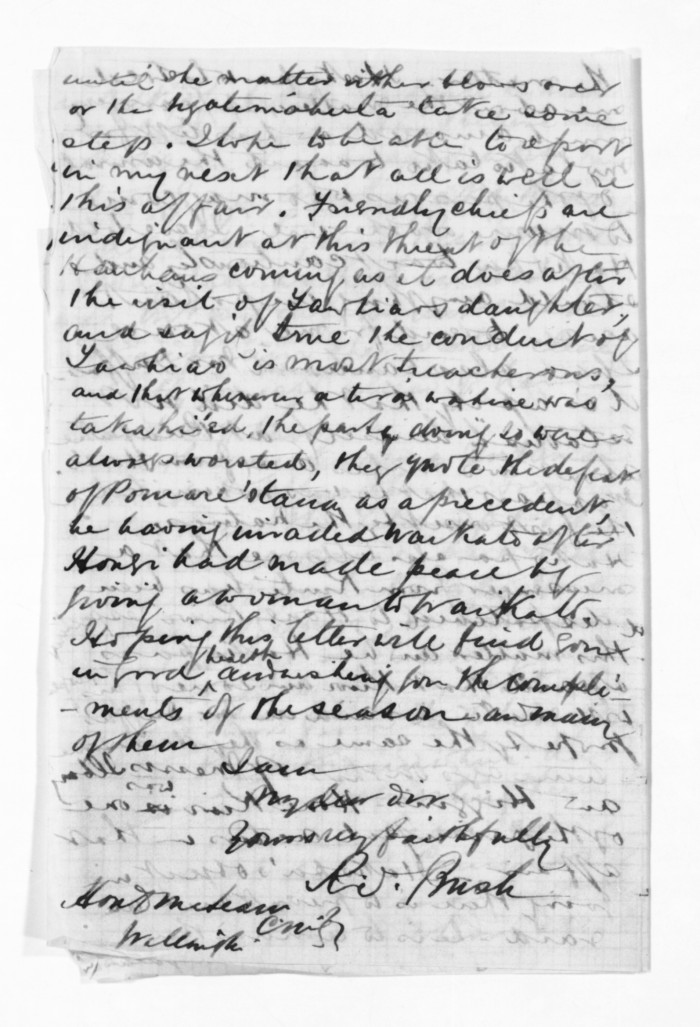 until the matter either blows over
or the Ngatimahuta take some
step. I hope to be able to report
in my next that all is well re
this affair. Friendly chiefs are
indignant at this threat of the
Hauhaus coming as it does after
the visit of Tawhiao's daughter,
and say if true the conduct of
Tawhiao is most treacherous,
and that whenever a wahine was
takahi'ed, the party doing so were
always worsted, they quote the defeat
of Pomare's taua as a precedent,
he having invaded Waikato after
Hongi had made peace by
giving a woman to Waikato
Hoping this letter will find you
in good health and wishing you the compli-
-ments of the season an many
of them
I am
My dear Sir
Yours very faithfully
R.S. Bush
Hon D McLean
Wellington